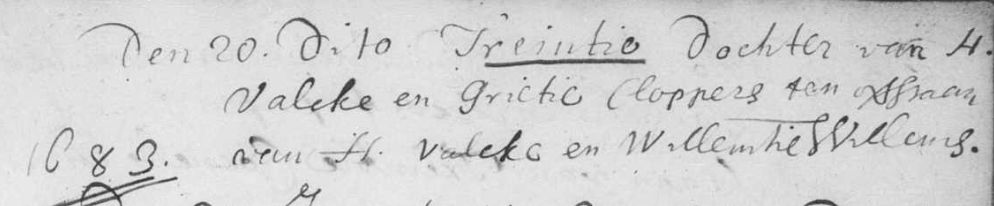 Den 20. Dito Treintie Dochter van H.
Valcke en Grietie Cloppers ten
van H. Valcke en Willemtie Willems.
1683.